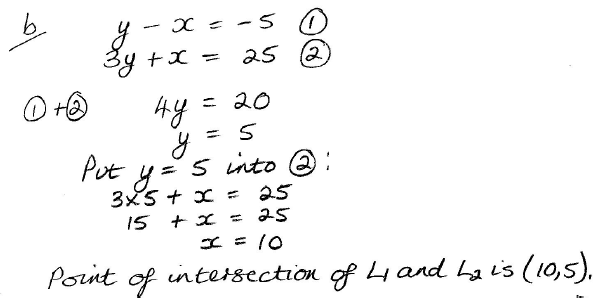 b y - x = -5 ①
3y + x = 25 ②
① + ② 4y = 20
y = 5
Put y = 5 into ② :
3x5 + x = 25
15 + x = 25
x = 10
Point of intersection of L1 and L2 is (10,5).